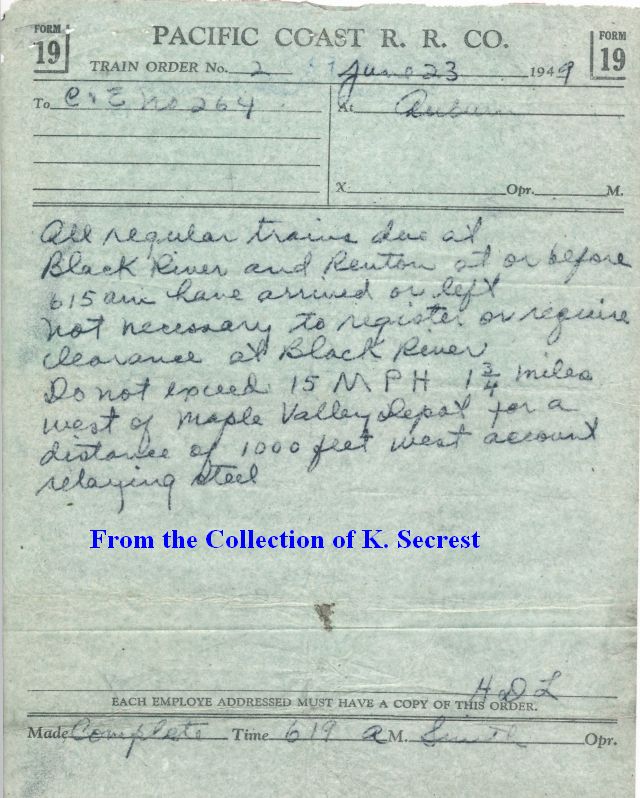 FORM 19
PACIFIC COAST R. R. CO.
FORM 19
TRAIN ORDER No. 2 June 23 1949
To C & E No 264
At Auburn
X. Opr. M.
All regular trains due at
Black River and Renton at or before
615 am have arrived or left
not necessary to register or require
clearance at Black River
Do not exceed 15 MPH 1 3/4 miles
west of Maple Valley Depot for a
distance of 1000 feet west account
relaying steel
From the Collection of K. Secrest
H D L
EACH EMPLOYE ADDRESSED MUST HAVE A COPY OF THIS ORDER.
Made Complete Time 619 a M. Smith Opr.